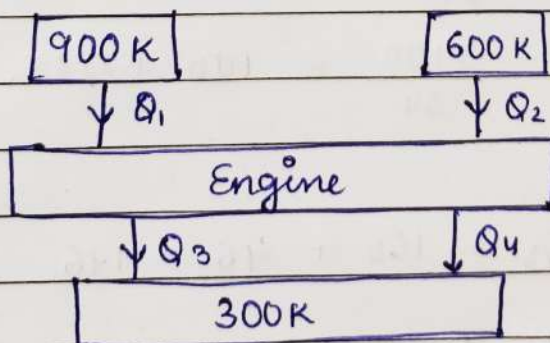 900 K 600 K
Q₁ Q₂
Engine
Q₃ Q₄
300 K